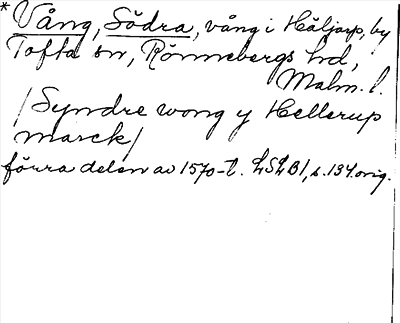 * Vång, Södra, vång i Häljarp, by
Tofta sn, Rönnebergs hd,
Malm. l.
/Syndre wong y Hellerup
marck/
förra delen av 1570-t. LSLB1, s. 134 orig.